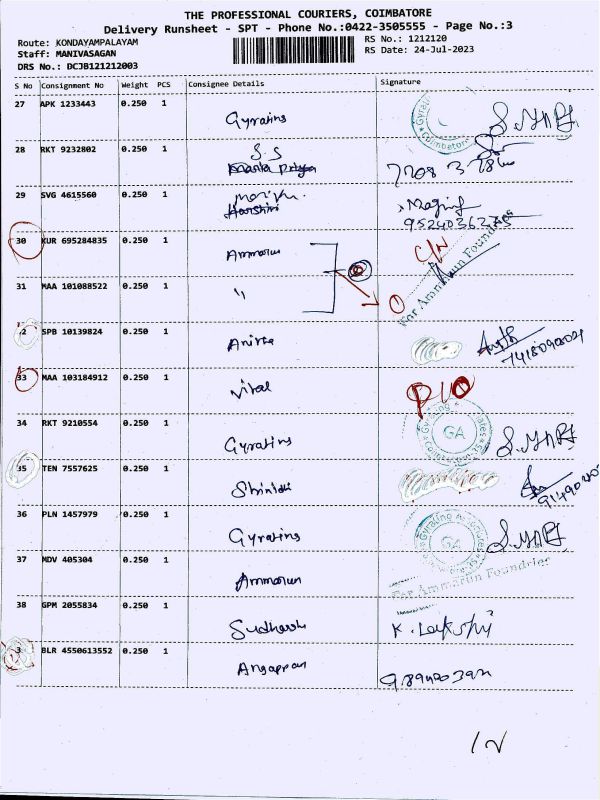 THE PROFESSIONAL COURIERS, COIMBATORE
Delivery Runsheet - SPT - Phone No.:0422-3505555 - Page No.:3
Route: KONDAYAMPALAYAM
RS No.: 1212120
Staff: MANIVASAGAN
RS Date: 24-Jul-2023
DRS No.: DCJB121212003
S No Consignment No Weight PCS Consignee Details Signature
27 APK 1233443 0.250 1 Gyrating
28 RKT 9232802 0.250 1 S.S
29 SVG 4615560 0.250 1 Harshini
9524036275
30 KUR 695284835 0.250 1 Ammarun C/N
31 MAA 101088522 0.250 1 " 1
For Ammarun Foundries
32 SPB 10139824 0.250 1 Anitha
33 MAA 103184912 0.250 1 Vital
34 RKT 9210554 0.250 1 Gyrating GA
35 TEN 7557625 0.250 1 Shrinidi
36 PLN 1457979 0.250 1 Gyrating GA
37 MDV 405304 0.250 1 Ammarun For Ammarun Foundries
38 GPM 2055834 0.250 1 Sudharsh K. Lakshmi
BLR 4550613552 0.250 1 Angappan